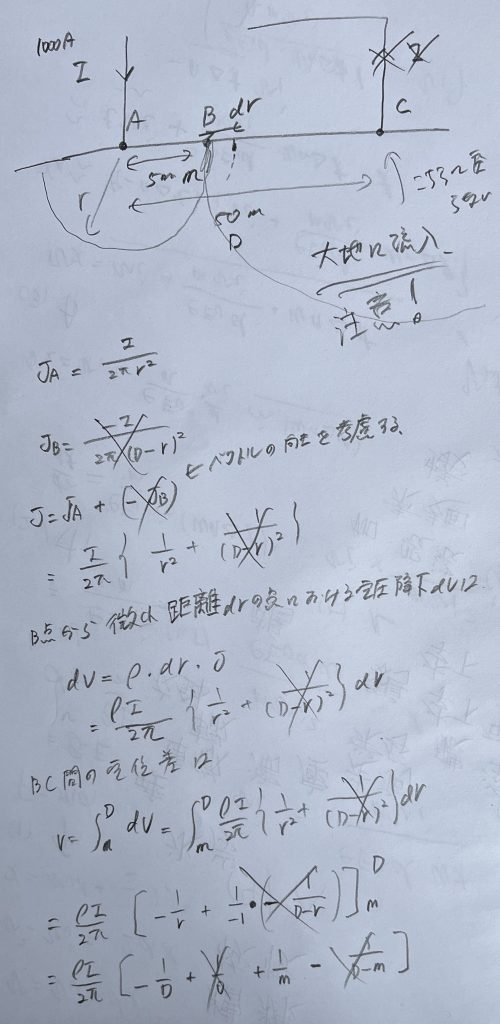 1000A
I
A
B dr
C
r
5m m
50m
D
大地に流入
注意!
J_A = I / 2πr²
J_B = -I / 2π(D-r)²
J = J_A + (-J_B) ← ベクトルの向きを考慮する
= I/2π { 1/r² + 1/(D-r)² }
B点から 微小距離drの点における電圧降下dVは
dV = ρ・dr・J
= ρI/2π { 1/r² + 1/(D-r)² } dr
BC間の電位差は
V = ∫_m^D dV = ∫_m^D ρI/2π { 1/r² + 1/(D-r)² } dr
= ρI/2π [ -1/r + 1/-1・(-1/D-r) ]_m^D
= ρI/2π [ -1/D + 1/0 + 1/m - 1/D-m ]